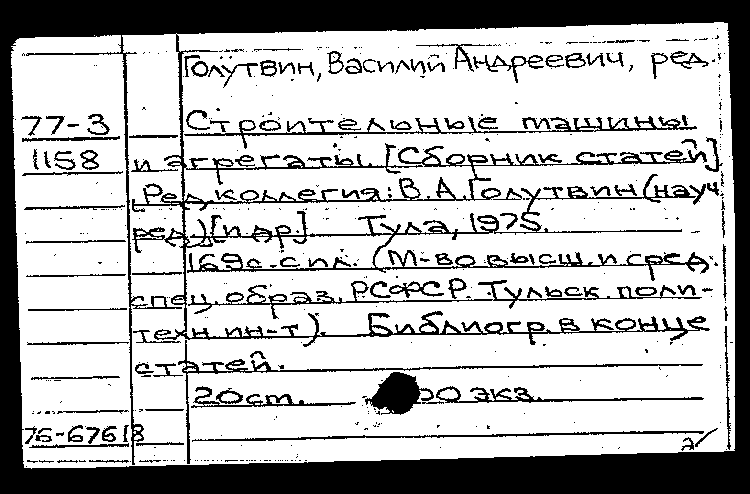 Голутвин, Василий Андреевич, ред.
77-3 Строительные машины
1158 и агрегаты. [Сборник статей]
[Ред. коллегия: В.А. Голутвин (науч.
ред.) [и др]. Тула, 1975.
169с. с ил. (М-во высш. и сред.
спец. образ. РСФСР. Тульск. поли-
техн. ин-т). Библиогр. в конце
статей.
20см. 00 экз.
76-67618